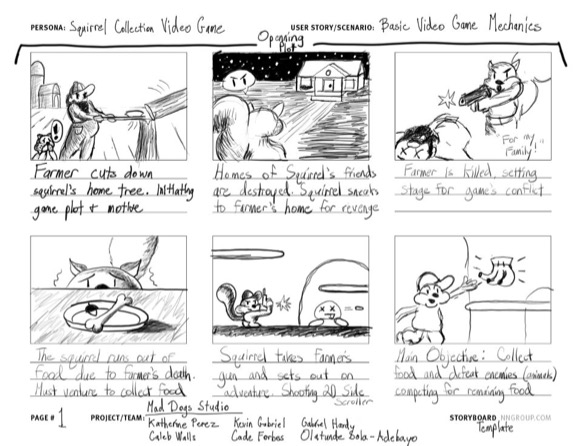 PERSONA: Squirrel Collection Video Game
USER STORY/SCENARIO: Basic Video Game Mechanics
Openning
Plot
For my
Family!"
Farmer cuts down
squirrel's home tree. Initiating
game plot + motive
Homes of Squirrel's friends
are destroyed. Squirrel sneaks
to farmer's home for revenge
Farmer is killed, setting
stage for game's conflict
The squirrel runs out of
food due to farmer's death.
Must venture to collect food
Squirrel takes farmer's
gun and sets out on
adventure. Shooting 2D Side
Scroller
Main Objective: Collect
food and defeat enemies (animals)
competing for remaining food
PAGE # 1
PROJECT/TEAM: Mad Dogs Studio
Katherine Perez Kevin Gabriel Gabriel Hardy
Caleb Walls Cade Forbes Olatunde Sola-Adebayo
STORYBOARD NNGROUP.COM
Template